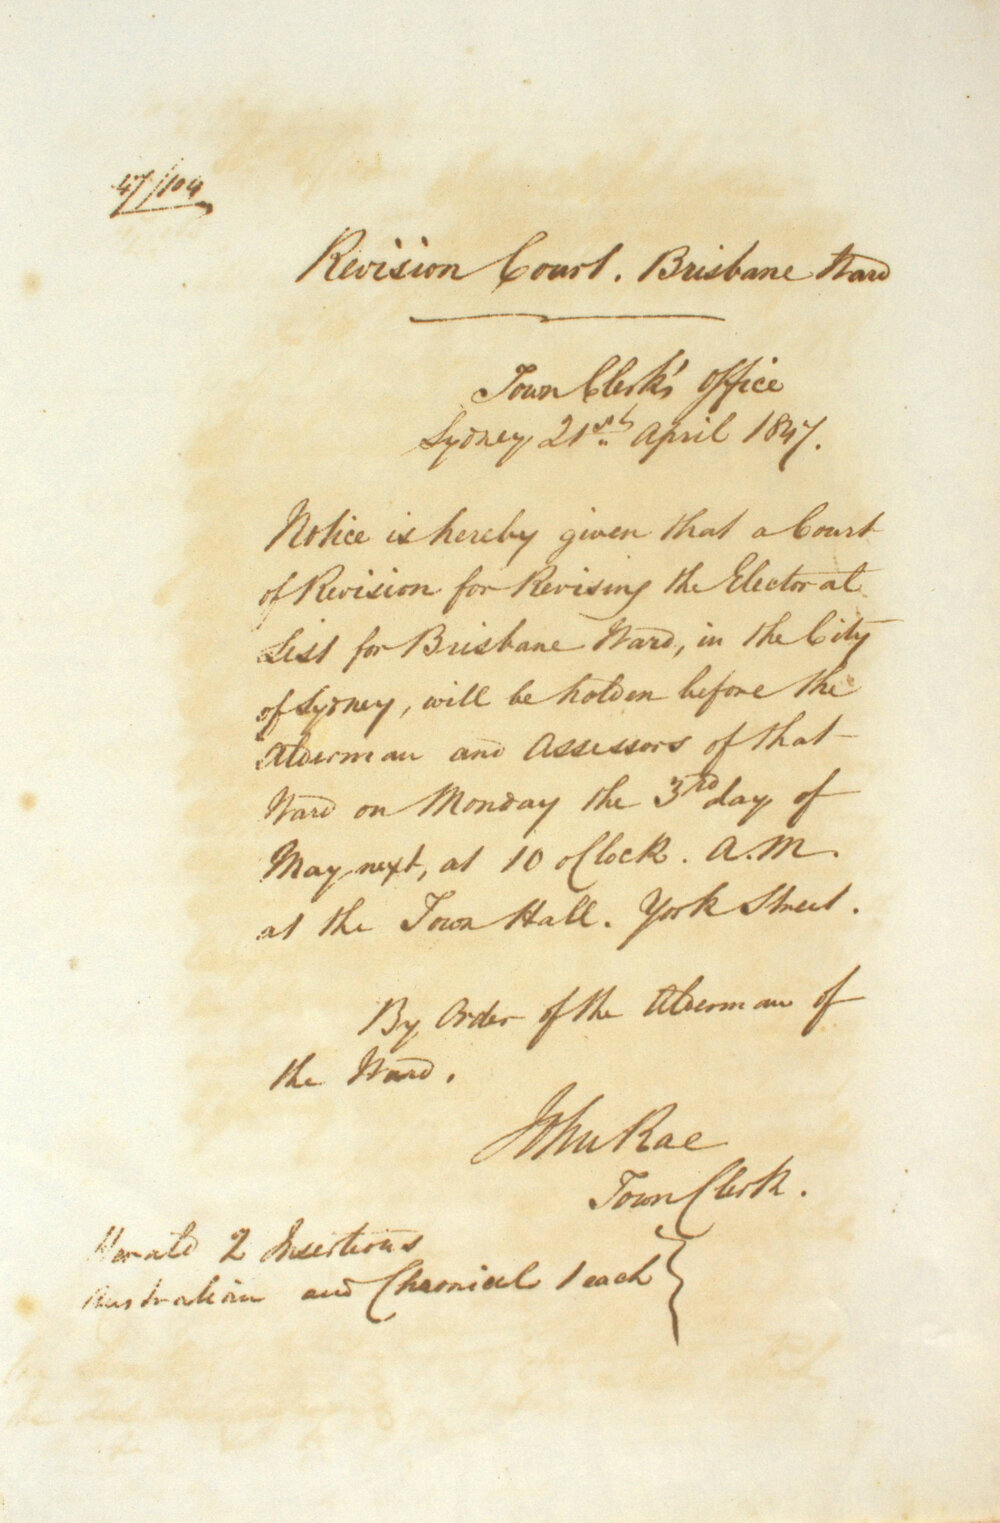 47/104
Revision Court. Brisbane Ward
Town Clerk's Office
Sydney 21st April 1847.
Notice is hereby given that a Court
of Revision for Revising the Electoral
List for Brisbane Ward, in the City
of Sydney, will be holden before the
Alderman and Assessors of that
Ward on Monday the 3rd day of
May next, at 10 oClock. A.M.
at the Town Hall. York Street.
By Order of the Alderman of
the Ward.
John Rae
Town Clerk.
Herald 2 Insertions
Australian and Chronicel 1 each